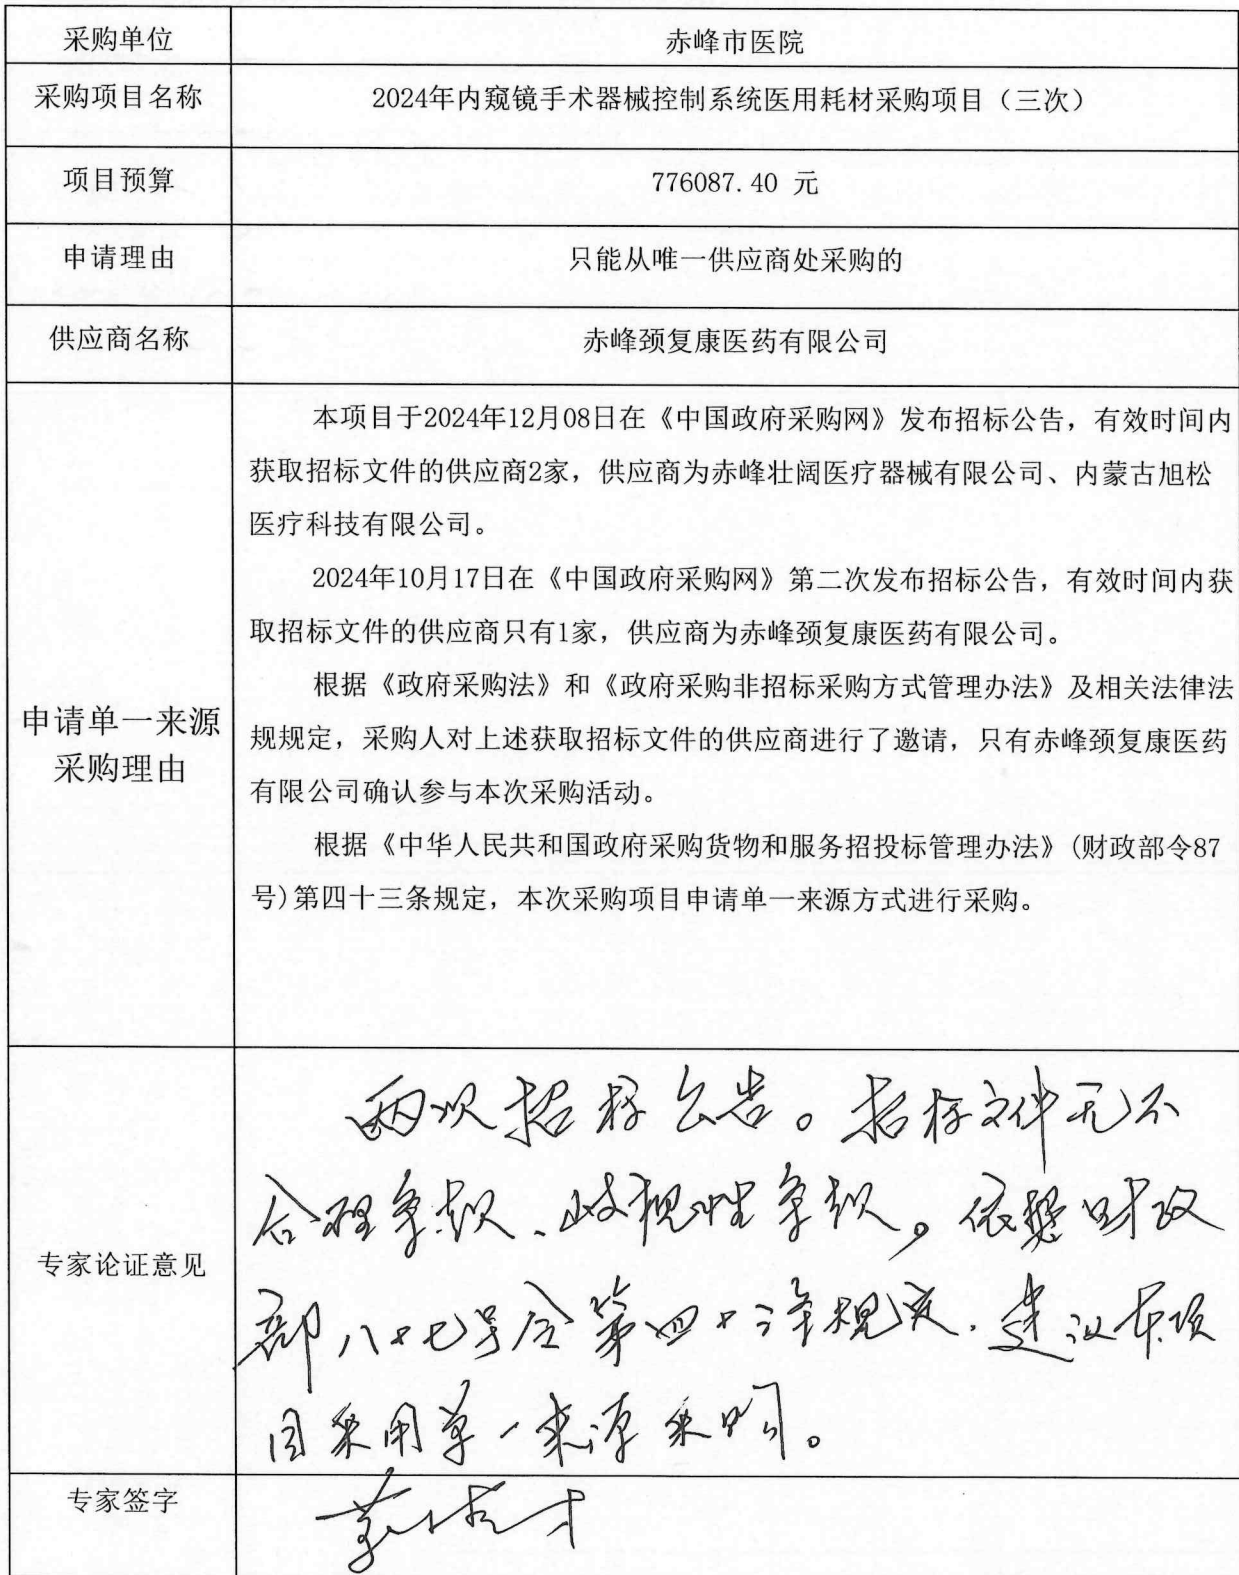 采购单位
赤峰市医院
采购项目名称
2024年内窥镜手术器械控制系统医用耗材采购项目（三次）
项目预算
776087.40 元
申请理由
只能从唯一供应商处采购的
供应商名称
赤峰颈复康医药有限公司
申请单一来源
采购理由
本项目于2024年12月08日在《中国政府采购网》发布招标公告，有效时间内
获取招标文件的供应商2家，供应商为赤峰壮阔医疗器械有限公司、内蒙古旭松
医疗科技有限公司。
2024年10月17日在《中国政府采购网》第二次发布招标公告，有效时间内获
取招标文件的供应商只有1家，供应商为赤峰颈复康医药有限公司。
根据《政府采购法》和《政府采购非招标采购方式管理办法》及相关法律法
规规定，采购人对上述获取招标文件的供应商进行了邀请，只有赤峰颈复康医药
有限公司确认参与本次采购活动。
根据《中华人民共和国政府采购货物和服务招投标管理办法》(财政部令87
号)第四十三条规定，本次采购项目申请单一来源方式进行采购。
专家论证意见
两次招标公告。招标文件无不
合理条款、歧视性条款。依据财政
部八十七号令第四十三条规定.建议本项
目采用单一来源采购。
专家签字